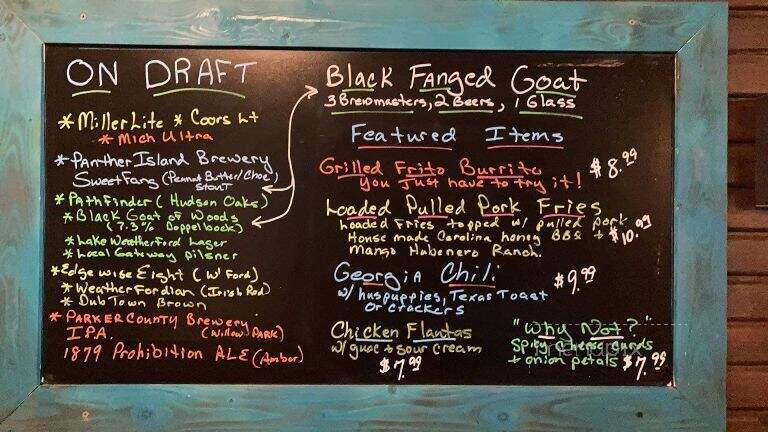 ON DRAFT
* Miller Lite * Coors Lt
* Mich Ultra
* Panther Island Brewery
Sweet Fang (Peanut Butter/Choc
Stout
* Pathfinder (Hudson Oaks)
* Black Goat of Woods
(7.3% Doppelbock)
* Lake Weatherford Lager
* Local Gateway Pilsner
* Edgewise Eight (W'Ford)
* Weatherfordian (Irish Red)
* Dub Town Brown
* Parker County Brewery
I.P.A. (Willow Park)
1879 Prohibition ALE (Amber)
Black Fanged Goat
3 Brewmasters, 2 Beers, 1 Glass
Featured Items
Grilled Frito Burrito $8.99
you just have to try it!
Loaded Pulled Pork Fries
Loaded Fries topped w/ pulled pork
House made Carolina honey BBQ + $10.99
Mango Habenero Ranch.
Georgia Chili $9.99
w/ huspuppies, Texas Toast
or crackers
Chicken Flautas
w/ guac + sour cream
$7.99
"Why Not?"
Spicy cheese curds
+ onion petals $7.99